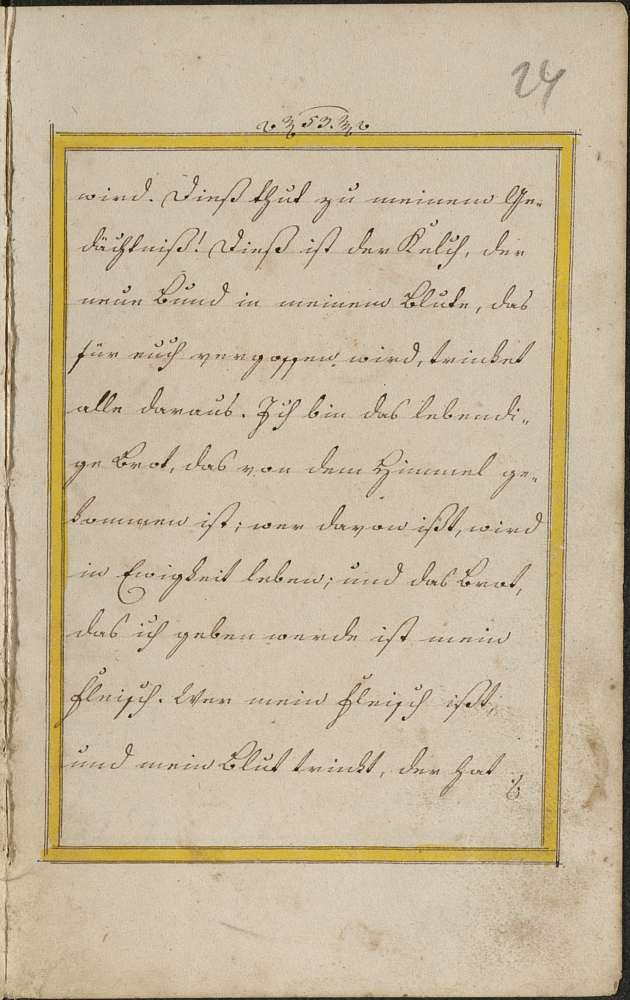 24
53.
wird. Dieß thut zu meinem Ge-
dächtniß! Dieß ist der Kelch, der
neue Bund in meinem Blute, das
für euch vergossen wird, trinket
alle daraus. Ich bin das lebendi-
ge Brot, das von dem Himmel ge-
kommen ist; wer davon ißt, wird
in Ewigkeit leben; und das Brot,
das ich geben werde ist mein
Fleisch. Wer mein Fleisch ißt,
und mein Blut trinkt, der hat